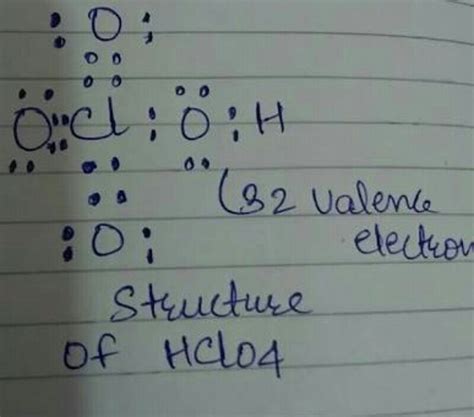 :O:
O::Cl:O:H
:O:
(32 valence
electron
Structure
Of HClO4